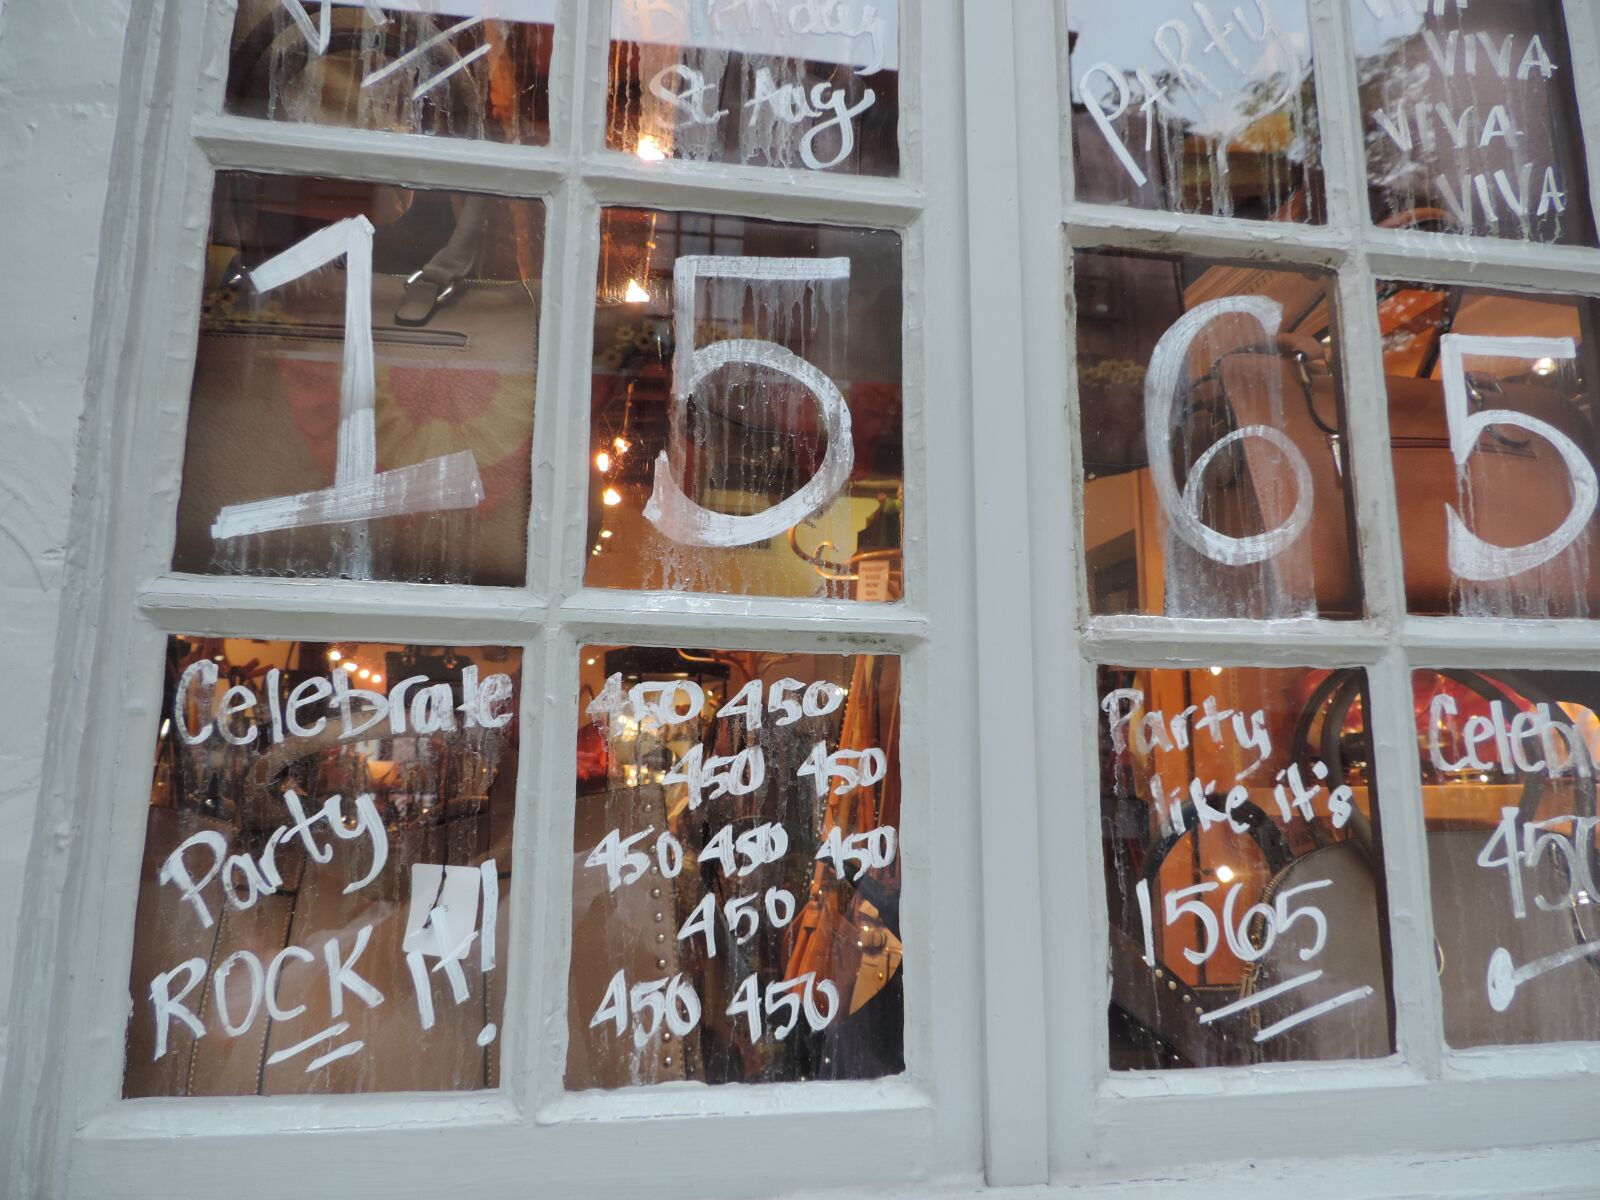 Birthday
St. Aug
PARty
VIVA
VIVA
VIVA
VIVA
1 5 6 5
Celebrate
Party
ROCK it!
450 450
450 450
450 450 450
450
450 450
Party
like it's
1565
Celebr
450